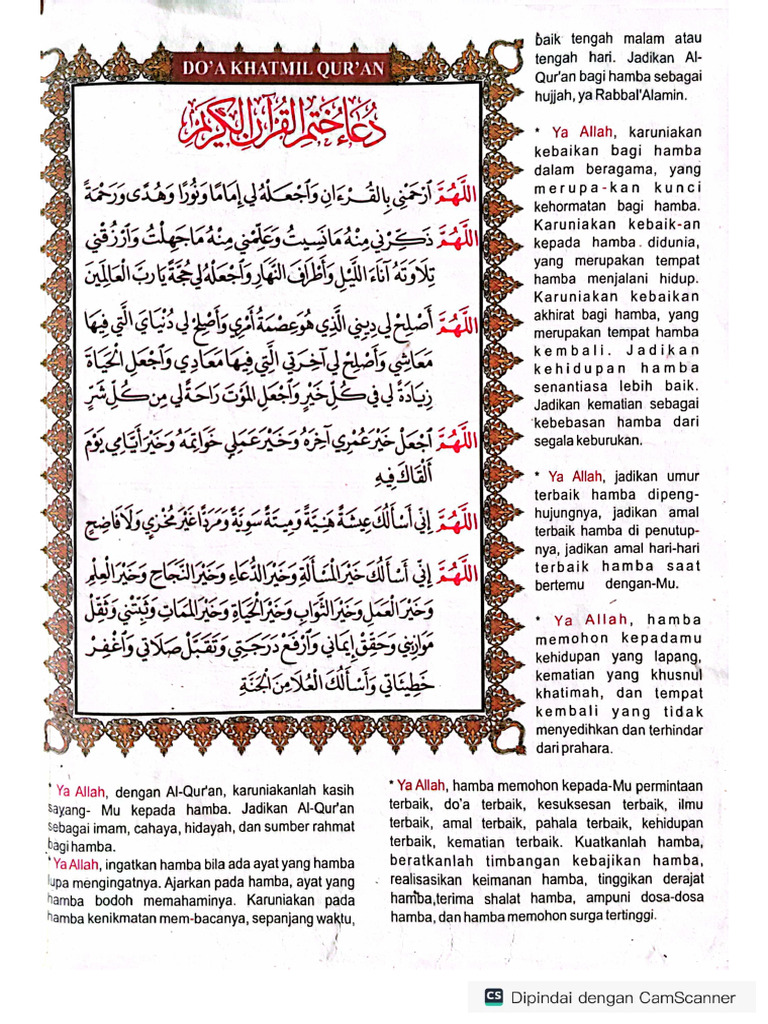 DO'A KHATMIL QUR'AN
دُعَاءُ خَتْمِ الْقُرْآنِ الْكَرِيْمِ
اَللَّهُمَّ ٱرْحَمْنِي بِالْقُرْءَانِ وَٱجْعَلْهُ لِي إِمَامًا وَنُورًا وَهُدًى وَرَحْمَةً
اَللَّهُمَّ ذَكِّرْنِي مِنْهُ مَا نَسِيتُ وَعَلِّمْنِي مِنْهُ مَا جَهِلْتُ وَٱرْزُقْنِي
تِلَاوَتَهُ آنَاءَ اللَّيْلِ وَأَطْرَافَ النَّهَارِ وَٱجْعَلْهُ لِي حُجَّةً يَا رَبَّ الْعَالَمِينَ
اَللَّهُمَّ أَصْلِحْ لِي دِينِي الَّذِي هُوَ عِصْمَةُ أَمْرِي وَأَصْلِحْ لِي دُنْيَايَ الَّتِي فِيهَا
مَعَاشِي وَأَصْلِحْ لِي آخِرَتِي الَّتِي فِيهَا مَعَادِي وَٱجْعَلِ الْحَيَاةَ
زِيَادَةً لِي فِي كُلِّ خَيْرٍ وَٱجْعَلِ الْمَوْتَ رَاحَةً لِي مِن كُلِّ شَرٍّ
اَللَّهُمَّ ٱجْعَلْ خَيْرَ عُمْرِي آخِرَهُ وَخَيْرَ عَمَلِي خَوَاتِمَهُ وَخَيْرَ أَيَّامِي يَوْمَ
أَلْقَاكَ فِيهِ
اَللَّهُمَّ إِنِّي أَسْأَلُكَ عِيشَةً هَنِيَّةً وَمِيتَةً سَوِيَّةً وَمَرَدًّا غَيْرَ مُخْزِي وَلَا فَاضِحٍ
اَللَّهُمَّ إِنِّي أَسْأَلُكَ خَيْرَ الْمَسْأَلَةِ وَخَيْرَ الدُّعَاءِ وَخَيْرَ النَّجَاحِ وَخَيْرَ الْعِلْمِ
وَخَيْرَ الْعَمَلِ وَخَيْرَ الثَّوَابِ وَخَيْرَ الْحَيَاةِ وَخَيْرَ الْمَمَاتِ وَثَبِّتْنِي وَثَقِّلْ
مَوَازِينِي وَحَقِّقْ إِيمَانِي وَٱرْفَعْ دَرَجَتِي وَتَقَبَّلْ صَلَاتِي وَٱغْفِرْ
خَطِيئَاتِي وَأَسْأَلُكَ الْعُلَا مِنَ الْجَنَّةِ
* Ya Allah, dengan Al-Qur'an, karuniakanlah kasih
sayang- Mu kepada hamba. Jadikan Al-Qur'an
sebagai imam, cahaya, hidayah, dan sumber rahmat
bagi hamba.
* Ya Allah, ingatkan hamba bila ada ayat yang hamba
lupa mengingatnya. Ajarkan pada hamba, ayat yang
hamba bodoh memahaminya. Karuniakan pada
hamba kenikmatan mem-bacanya, sepanjang waktu,
baik tengah malam atau
tengah hari. Jadikan Al-
Qur'an bagi hamba sebagai
hujjah, ya Rabbal'Alamin.
* Ya Allah, karuniakan
kebaikan bagi hamba
dalam beragama, yang
merupa-kan kunci
kehormatan bagi hamba.
Karuniakan kebaik-an
kepada hamba didunia,
yang merupakan tempat
hamba menjalani hidup.
Karuniakan kebaikan
akhirat bagi hamba, yang
merupakan tempat hamba
kembali. Jadikan
kehidupan hamba
senantiasa lebih baik.
Jadikan kematian sebagai
kebebasan hamba dari
segala keburukan.
* Ya Allah, jadikan umur
terbaik hamba dipeng-
hujungnya, jadikan amal
terbaik hamba di penutup-
nya, jadikan amal hari-hari
terbaik hamba saat
bertemu dengan-Mu.
* Ya Allah, hamba
memohon kepadamu
kehidupan yang lapang,
kematian yang khusnul
khatimah, dan tempat
kembali yang tidak
menyedihkan dan terhindar
dari prahara.
* Ya Allah, hamba memohon kepada-Mu permintaan
terbaik, do'a terbaik, kesuksesan terbaik, ilmu
terbaik, amal terbaik, pahala terbaik, kehidupan
terbaik, kematian terbaik. Kuatkanlah hamba,
beratkanlah timbangan kebajikan hamba,
realisasikan keimanan hamba, tinggikan derajat
hamba,terima shalat hamba, ampuni dosa-dosa
hamba, dan hamba memohon surga tertinggi.
CS Dipindai dengan CamScanner